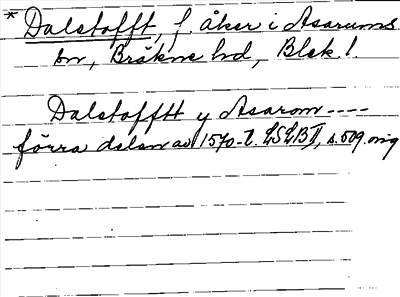 * Dalstofft, f. åker i Asarums
sn, Bräkne hd, Blek l.
Dalstofftt y Asarom ----
förra delen av 1570-t. LSLB II, s. 509. orig